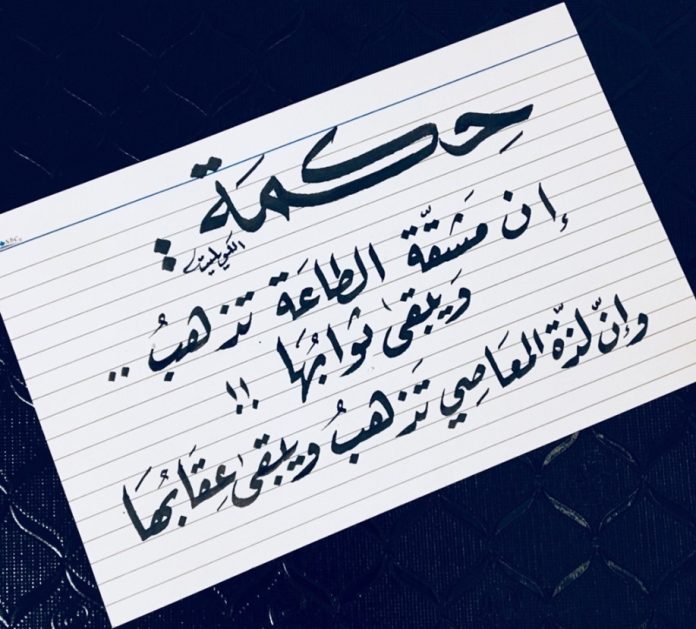 حِكمَة :
إن مَشقّة الطاعَة تذهبُ ..
وَيبقىٰ ثوابُهَا !!
وإنّ لذّة المعَاصِي تَذهبُ ويبقىٰ عِقابُهَا